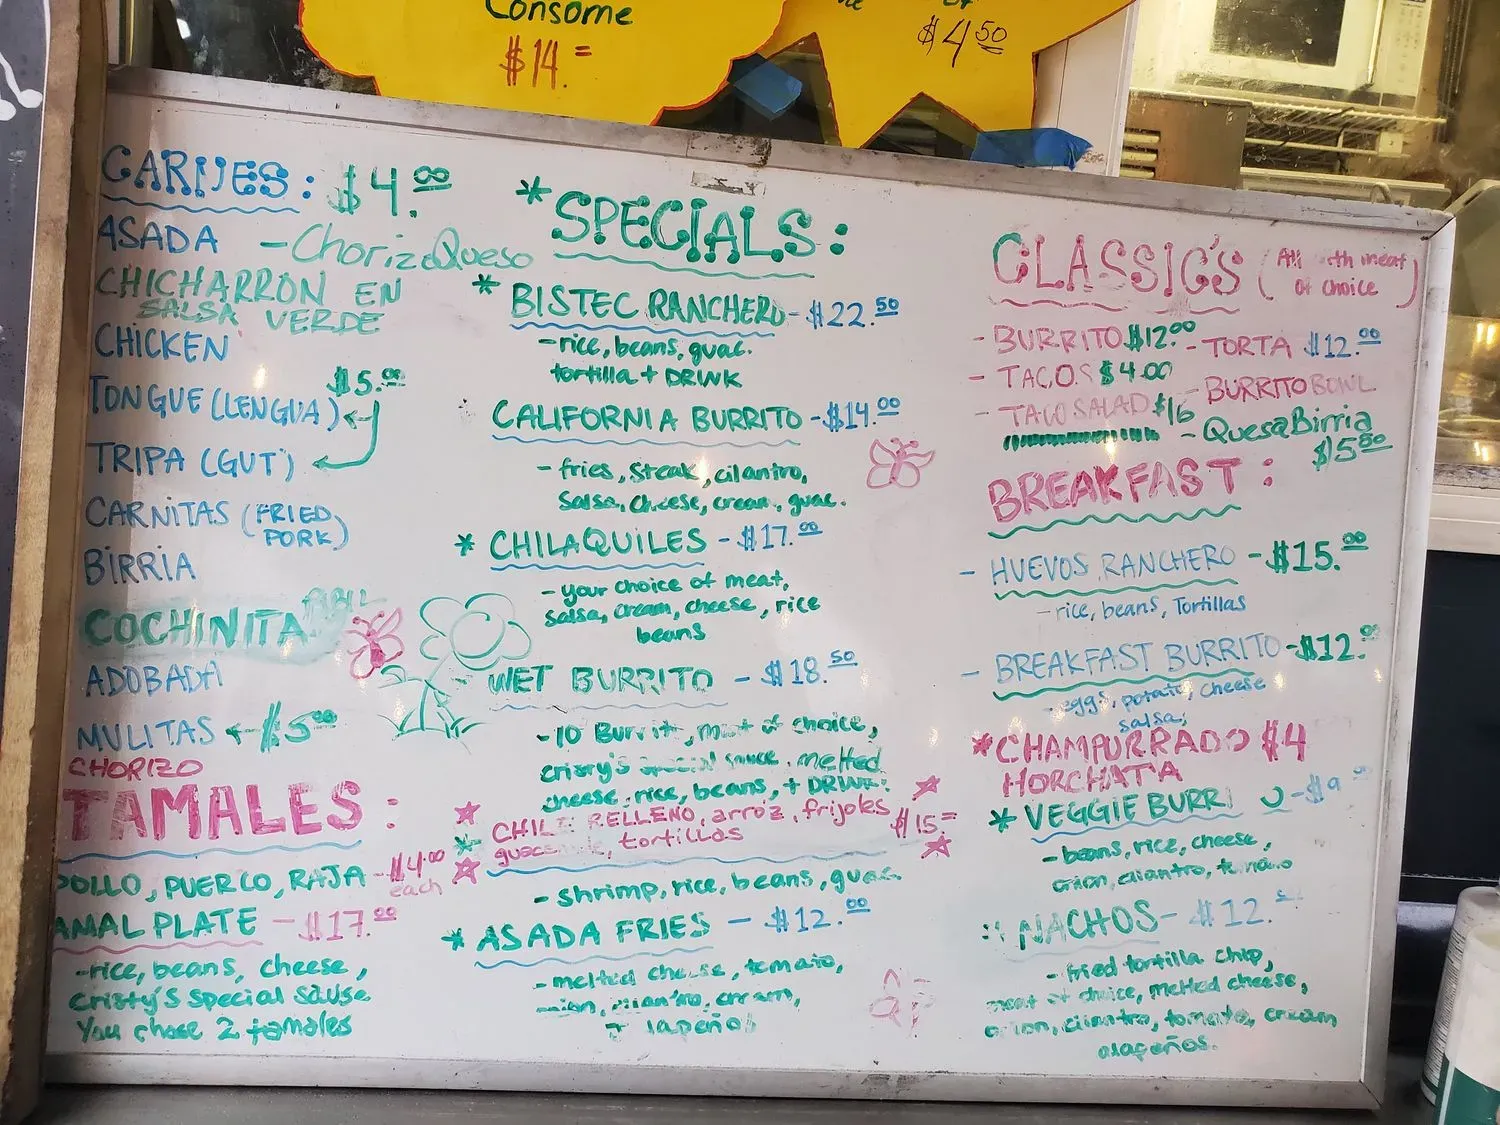 Consome
$14.=
$4.50
CARNES: $4.00
ASADA - Chorizo Queso
CHICHARRON EN
SALSA VERDE
CHICKEN
$5.00
TONGUE (LENGUA)
TRIPA (GUT)
CARNITAS (FRIED
PORK)
BIRRIA
COCHINITA
ADOBADA
MULITAS $5.00
CHORIZO
TAMALES:
POLLO, PUERCO, RAJA - $4.00
each
AMAL PLATE - $17.00
-rice, beans, cheese,
Cristy's special sause
You chose 2 tamales
*SPECIALS:
* BISTEC RANCHERO - $22.50
-rice, beans, guac.
tortilla + DRINK
CALIFORNIA BURRITO - $14.00
- fries, steak, cilantro,
Salsa, cheese, cream, guac.
* CHILAQUILES - $17.00
- your choice of meat,
salsa, cream, cheese, rice
beans
WET BURRITO - $18.50
- 10 Burrito, meat of choice,
cristy's special sauce, melted
cheese, rice, beans, + DRINK.
CHILE RELLENO, arroz, frijoles $15.=
tortillas
- shrimp, rice, beans, guac.
* ASADA FRIES - $12.00
- melted cheese, tomato,
onion, cilantro, cream,
CLASSIC'S (All with meat
of choice)
- BURRITO $12.00 - TORTA $12.00
- TACOS $4.00 - BURRITO BOWL
- TACO SALAD $16
- QuesaBirria
$5.00
BREAKFAST:
- HUEVOS RANCHERO - $15.00
- rice, beans, Tortillas
- BREAKFAST BURRITO - $12.00
- eggs, potato, cheese
salsa,
*CHAMPURRADO $4
HORCHATA
* VEGGIE BURRI - $9
- beans, rice, cheese,
onion, cilantro, tomato
NACHOS - $12.
- fried tortilla chip,
meat of choice, melted cheese,
onion, cilantro, tomato, cream
alapeños.